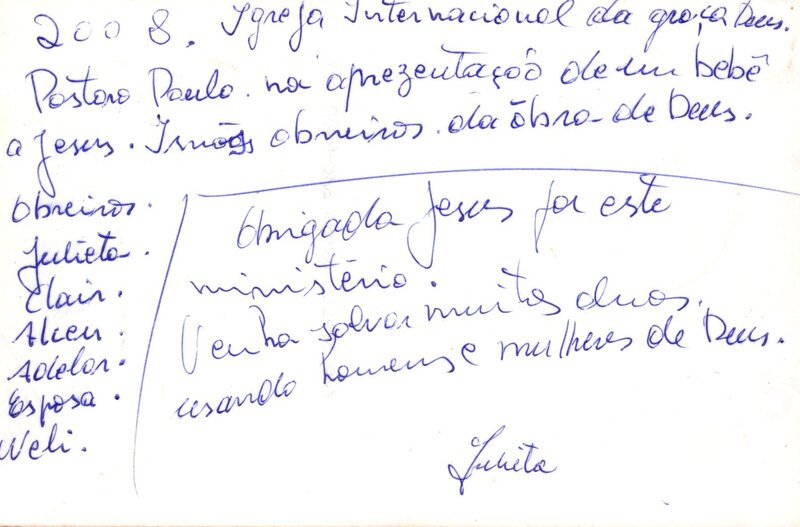 2008. Igreja Internacional da graça Deus.
Pastoro Paulo. na aprezentação de um bebê
a Jesus. Irmãos obreiros da ôbra de Deus.
Obreiros.
Julieta.
Clair.
Alceu.
Adelor.
Esposa.
Neli.
Obrigada Jesus por este
ministério.
Venha salvar muitas almas.
usando homens e mulheres de Deus.
Julieta